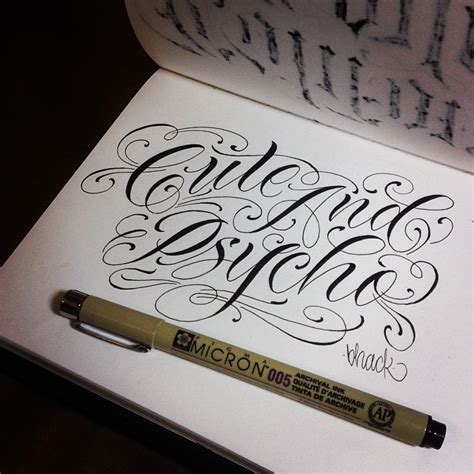 Cute And
Psycho
bhack
PIGMA
MICRON 005
ARCHIVAL INK
QUALITÉ D'ARCHIVAGE
TINTA DE ARCHIVE
AP